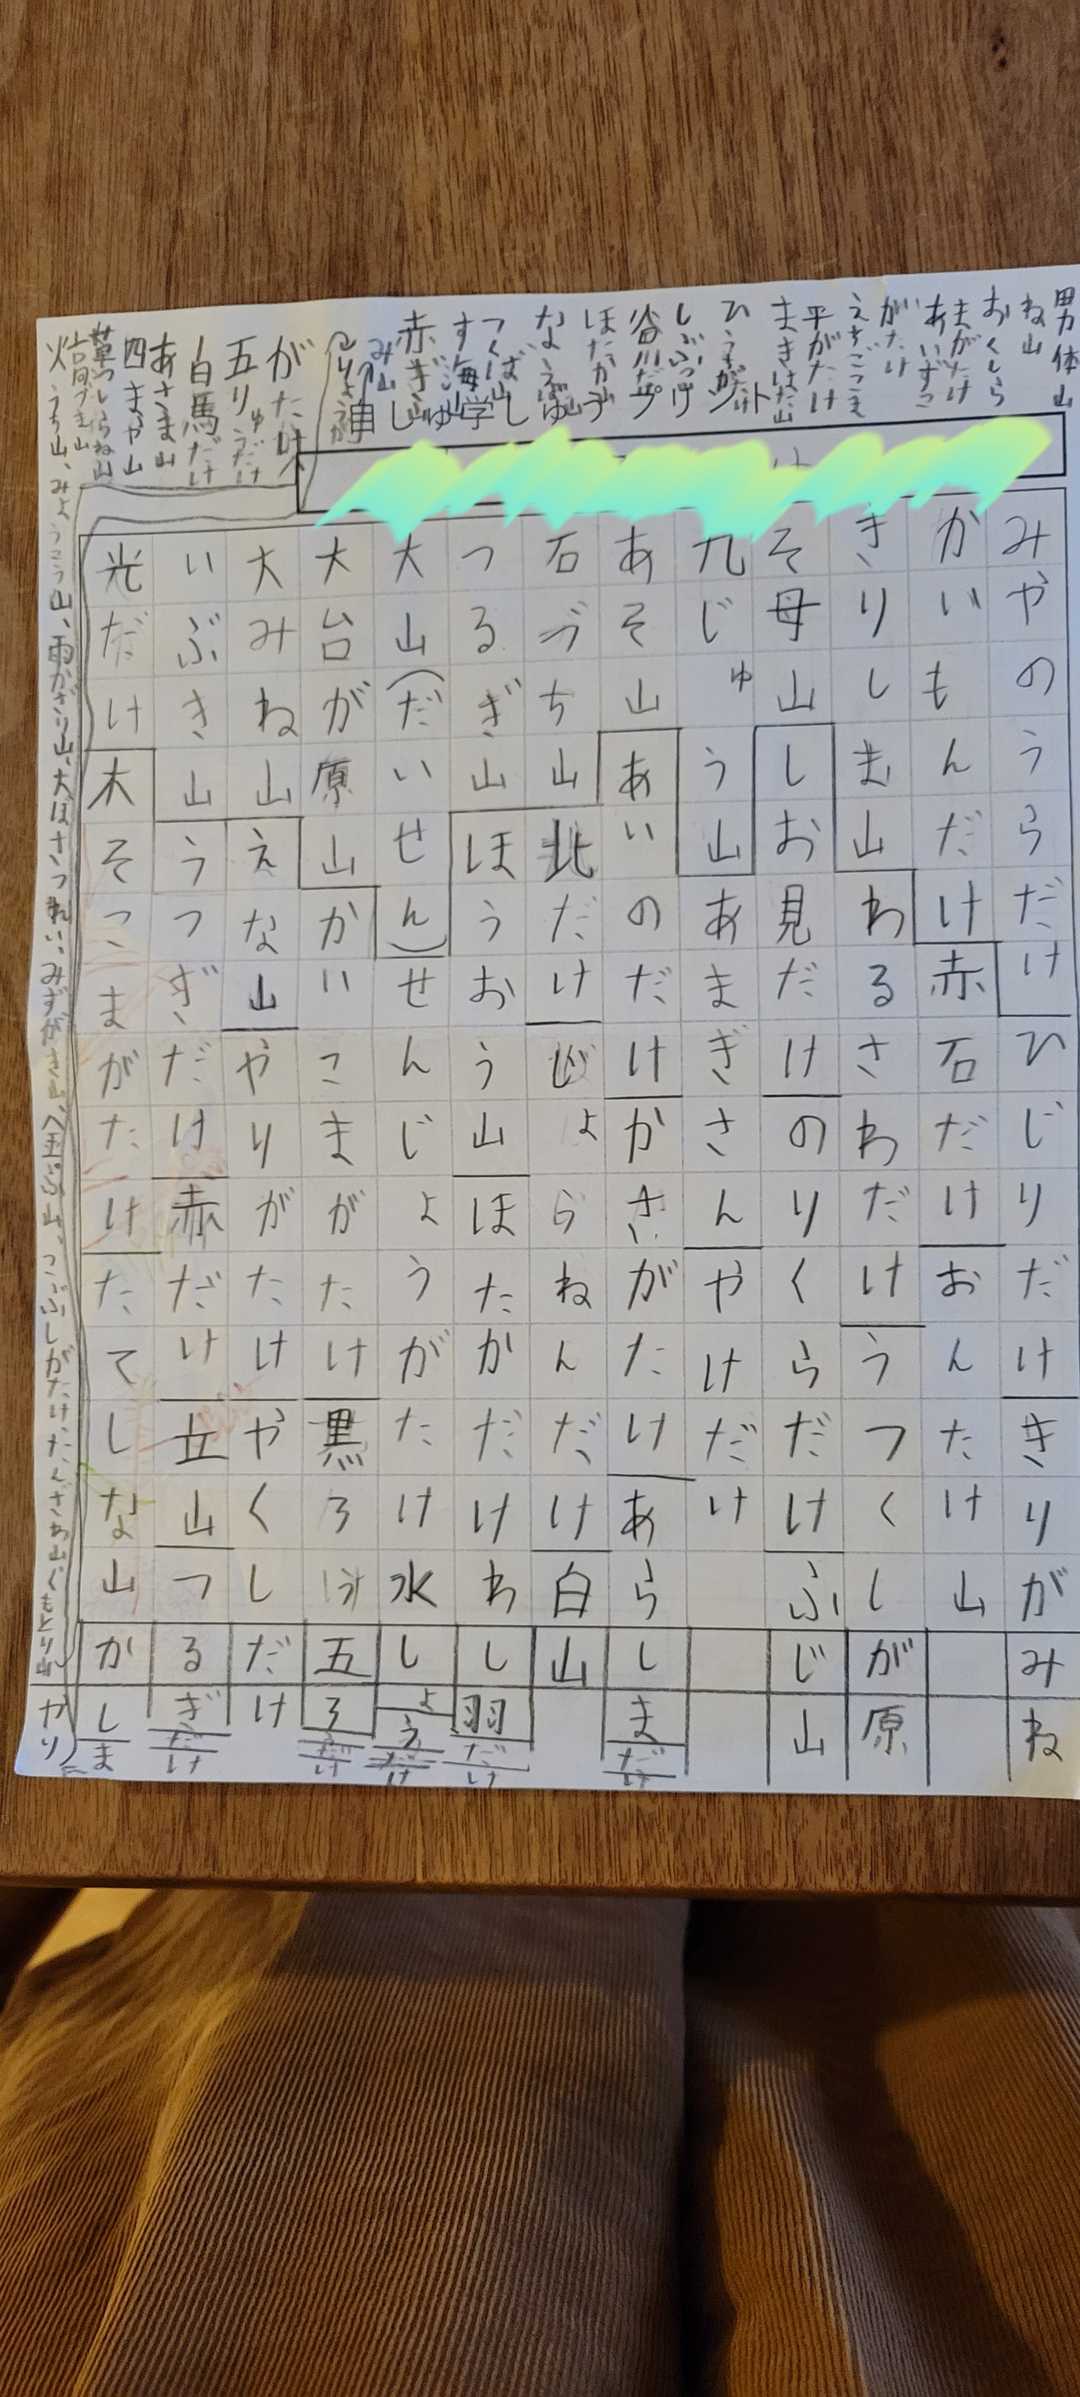 みやのうらだけひじりだけきりがみね
かいもんだけ赤石だけおんたけ山
きりしま山わるさわだけうつくしが原
そ母山しお見だけのりくらだけふじ山
九じゅう山あまぎさんやけだけ
あそ山あいのだけかさがたけあらしまだけ
石づち山北だけ
ょらねんだけ白山
つるぎ山ほうおう山ほたかだけわし羽だけ
大山（だいせん）せんじょうがたけ水しょうだけ
大台が原山かいこまがたけ黒ろ
五ろうだけ
大みね山えな山やりがたけやくしだけ
いぶき山うつぎだけ赤だけ立山つるぎだけ
光だけ木そこまがたけたてしな山かしま
やり
がたけ
五りゅうだけ
白馬だけ
あさま山
四あや山
しらね山
火うち山、みょうこう山、雨かざり山、大ぼさつれい、みずがき山、
こぶしがたけ、たんざわ山、くもとり山
赤ぎ山
つくば山
ほたか山
谷川だけ
平がたけ
まきはた山
えちごこま
がたけ
あいず
おくしら
ね山
男体山
学しゅう
プリント